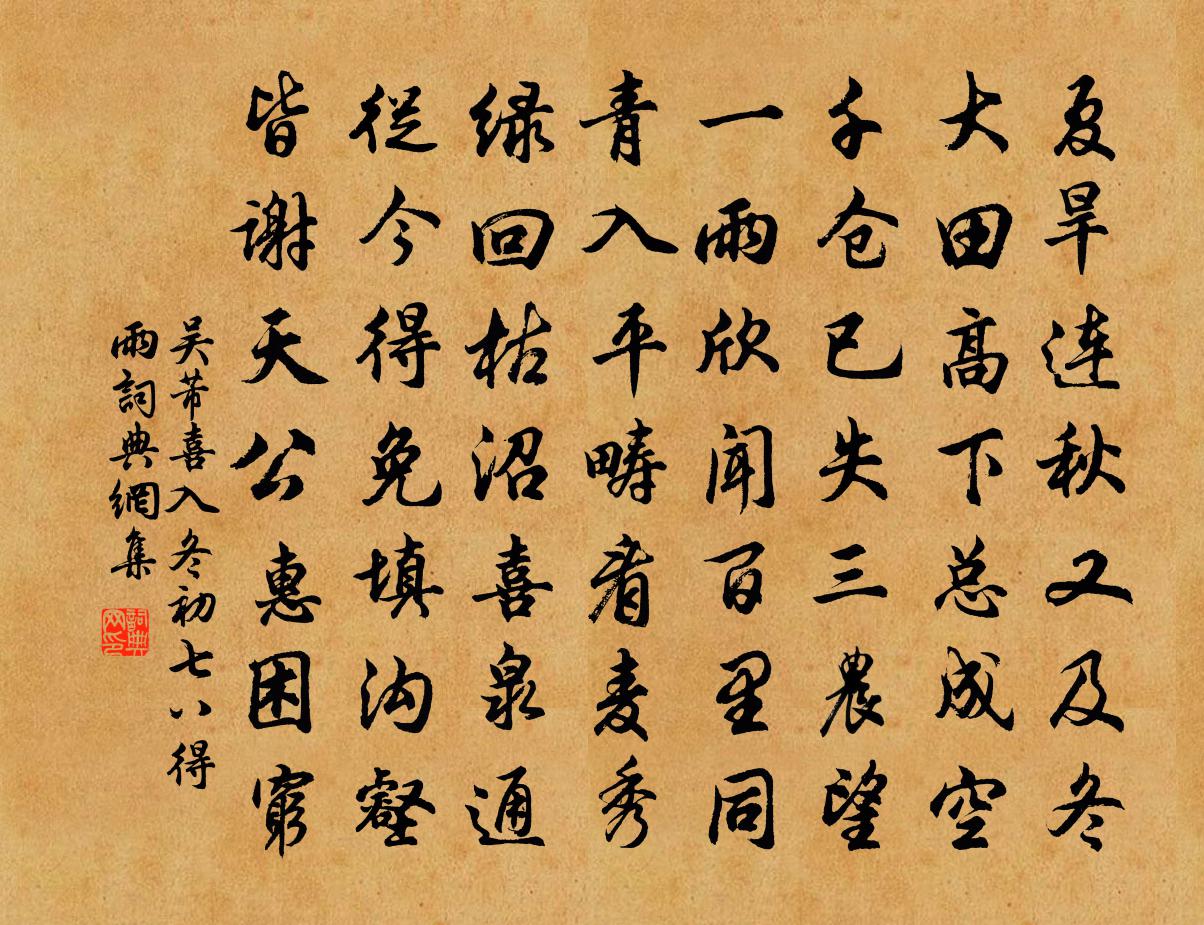 夏旱连秋又及冬
大田高下总成空
千仓已失三農望
一雨欣闻百里同
青入平畴看麦秀
绿回枯沼喜泉通
從今得免填沟壑
皆谢天公惠困窮
吴芾喜入冬初七八得
雨詞典網集
詞典网印